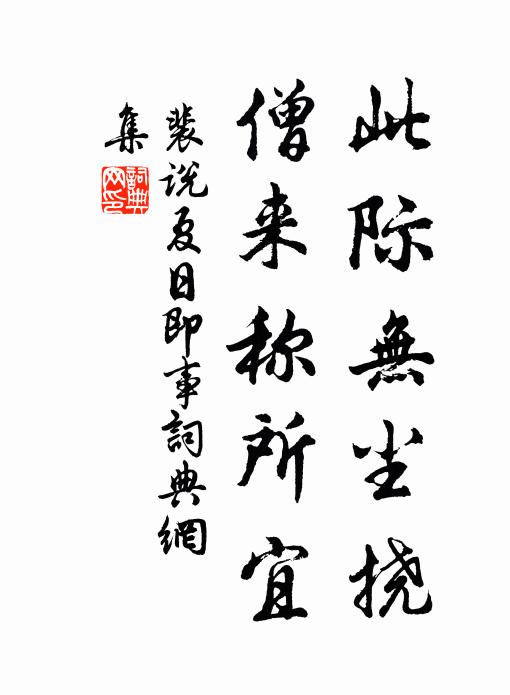 此际無尘挠
僧来称所宜
裴说夏日即事詞典網
集
詞典
网印